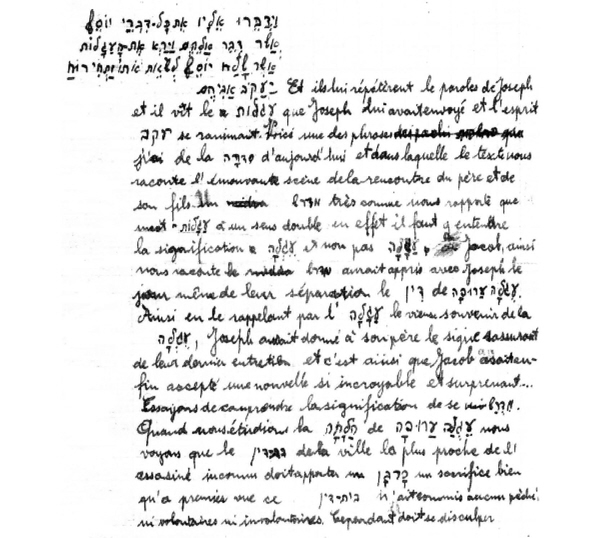 וידברו אליו את כל-דברי יוסף
אשר דבר אלהם וירא את-העגלות
אשר שלח יוסף לשאת אותו ותחי רוח
יעקב אביהם Et ils lui répétèrent le paroles de Joseph
et il vît le עגלות que Joseph lui avait envoyé et l'esprit
יעקב se ranimait. Voici une des phrases que
j'ai de la סדרה d'aujourd'hui et dans laquelle le texte nous
raconte l'émouvante scène de la rencontre du père et de
son fils. Un מדרש très connue nous rapporte que
le mot עגלות à un sens double en effet il faut y entendre
la signification עֶגְלָה et non pas עֲגָלָה. Jacob, ainsi
nous raconte le מדרש aurait appris avec Joseph le
jour même de leur séparation le דִין de עֶגְלָה עֲרוּפָה.
Ainsi en le rappelant par l' עֲגָלָה le vieux souvenir de la
עֶגְלָה, Joseph aurait donné à son père le signe
de leur dernier entretien et c'est ainsi que Jacob en-
fin accepte une nouvelle si incroyable et surprenant...
Essayons de comprendre la signification de se מדרש.
Quand nous étudions la הֲלָכָה de עֶגְלָה עֲרוּפָה nous
voyons que le בית-דין de la ville la plus proche de l'
assasiné inconnu doit apporter un קָרְבָּן un sacrifice bien
qu'a premiès vue ce בית-דין n'ait comis aucun péché,
ni volontaires ni involontaires. Cependant doit se disculper